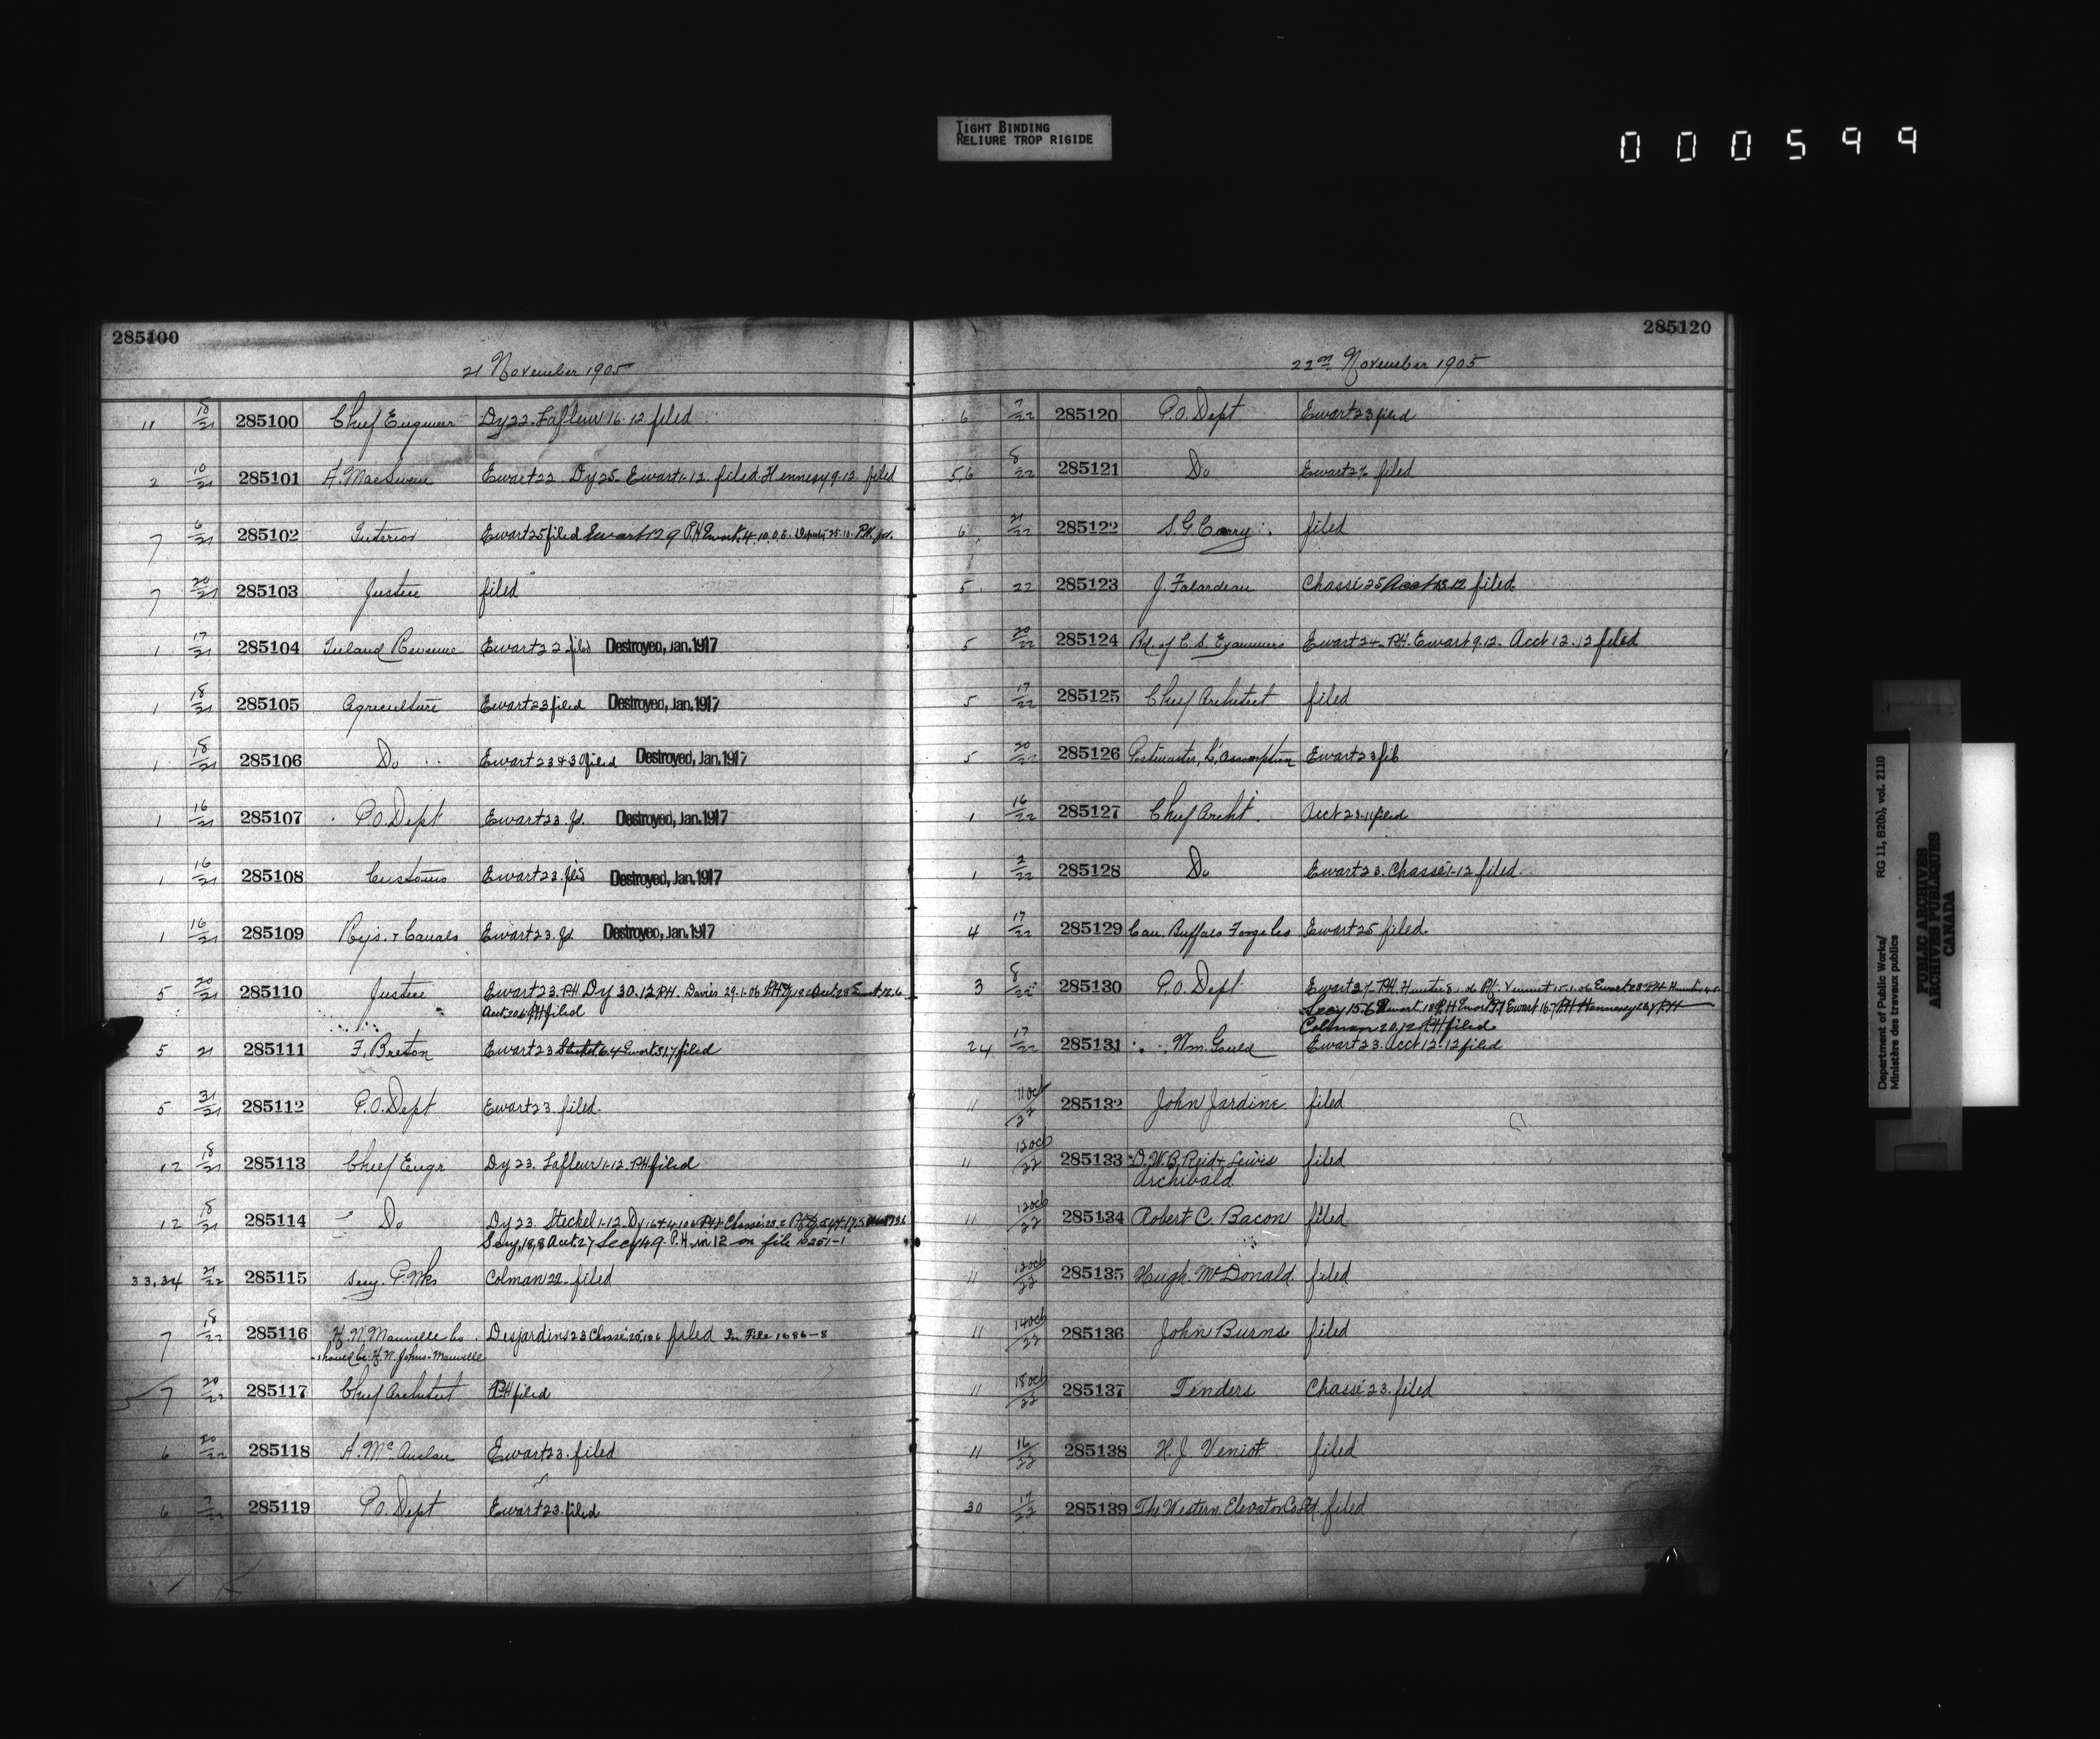 TIGHT BINDING
RELIURE TROP RIGIDE
000599
285100
21 November 1905
11 18/21 285100 Chief Engineer Dy 22. Lafleur 16.12 filed
2 10/21 285101 A. MacSween Ewart 22 Dy 25. Ewart 1.12. filed. Hennesy 9.12. filed
7 6/21 285102 Interior Ewart 25 filed Ewart 12 9 P.H. Ewart
7 20/21 285103 Justice filed
1 17/21 285104 Inland Revenue Ewart 22 filed Destroyed, Jan. 1917
1 18/21 285105 Agriculture Ewart 23 filed Destroyed, Jan. 1917
1 18/21 285106 Do Ewart 23 & 30 filed Destroyed, Jan. 1917
1 16/21 285107 P.O. Dept Ewart 23. fd. Destroyed, Jan. 1917
1 16/21 285108 Customs Ewart 23. fld Destroyed, Jan. 1917
1 16/21 285109 Rys. & Canals Ewart 23. fd. Destroyed, Jan. 1917
5 20/21 285110 Justice Ewart 23. P.H. Dy 30.12 P.H. Davies 29.1.06
Acct. 20.6 P.H. filed
5 21 285111 F. Breton Ewart 23 Steckel 6.4 Ewart 31.7 filed
5 21/21 285112 P.O. Dept Ewart 23. filed.
12 18/21 285113 Chief Engr Dy 23. Lafleur 1-12. P.H. filed
12 18/21 285114 Do Dy 23. Steckel 1-12. Dy 16
Secy. 18.8 Acct. 27 Secy 4.9 P.H. in 12 on file
33,34 21/22 285115 Secy. P. Wks Colman 22. filed
7 18/22 285116 H. W. Manville Co. Desjardins 23 Chassé filed In File 1686-8
should be H. W. Johns-Manville
7 20/22 285117 Chief Architect P.H. filed
6 20/22 285118 A. McAuslan Ewart 23. filed
6 7/22 285119 P.O. Dept Ewart 23. filed
285120
22nd November 1905
6 7/22 285120 P.O. Dept Ewart 23 filed
5,6 8/22 285121 Do Ewart filed
6 21/22 285122 S. G. Curry filed
5 22 285123 J. Falardeau Chassé 25 Acct 13.12 filed.
5 20/22 285124 Bd. of C. S. Examiners Ewart 24. P.H. Ewart 9.12. Acct 12.12 filed
5 17/22 285125 Chief Architect filed
5 20/22 285126 Postmaster, L'Assomption Ewart 23 filed
1 16/22 285127 Chief Archt. Acct 23.11 filed
1 2/22 285128 Do Ewart 23. Chassé 1-12 filed.
4 17/22 285129 Can. Buffalo Forge Co Ewart 25 filed.
3 8/22 285130 P.O. Dept Ewart
Secy 15.6 Ewart
Colman 20.12 P.H. filed.
24 17/22 285131 Wm. Gould Ewart 23. Acct 12.12 filed
11 11 Oct/22 285132 John Jardine filed
11 13 Oct/22 285133 D. W. B. Reid & Lewis filed
Archibald
11 13 Oct/22 285134 Robert C. Bacon filed
11 13 Oct/22 285135 Hugh McDonald filed
11 14 Oct/22 285136 John Burns filed
11 18 Oct/22 285137 Tenders Chassé 23. filed
11 16/22 285138 H. J. Veniot filed
30 17/22 285139 The Western Elevator Co Ltd. filed
Department of Public Works/
Ministère des travaux publics
RG 11, B2(b), vol. 2110
PUBLIC ARCHIVES
ARCHIVES PUBLIQUES
CANADA